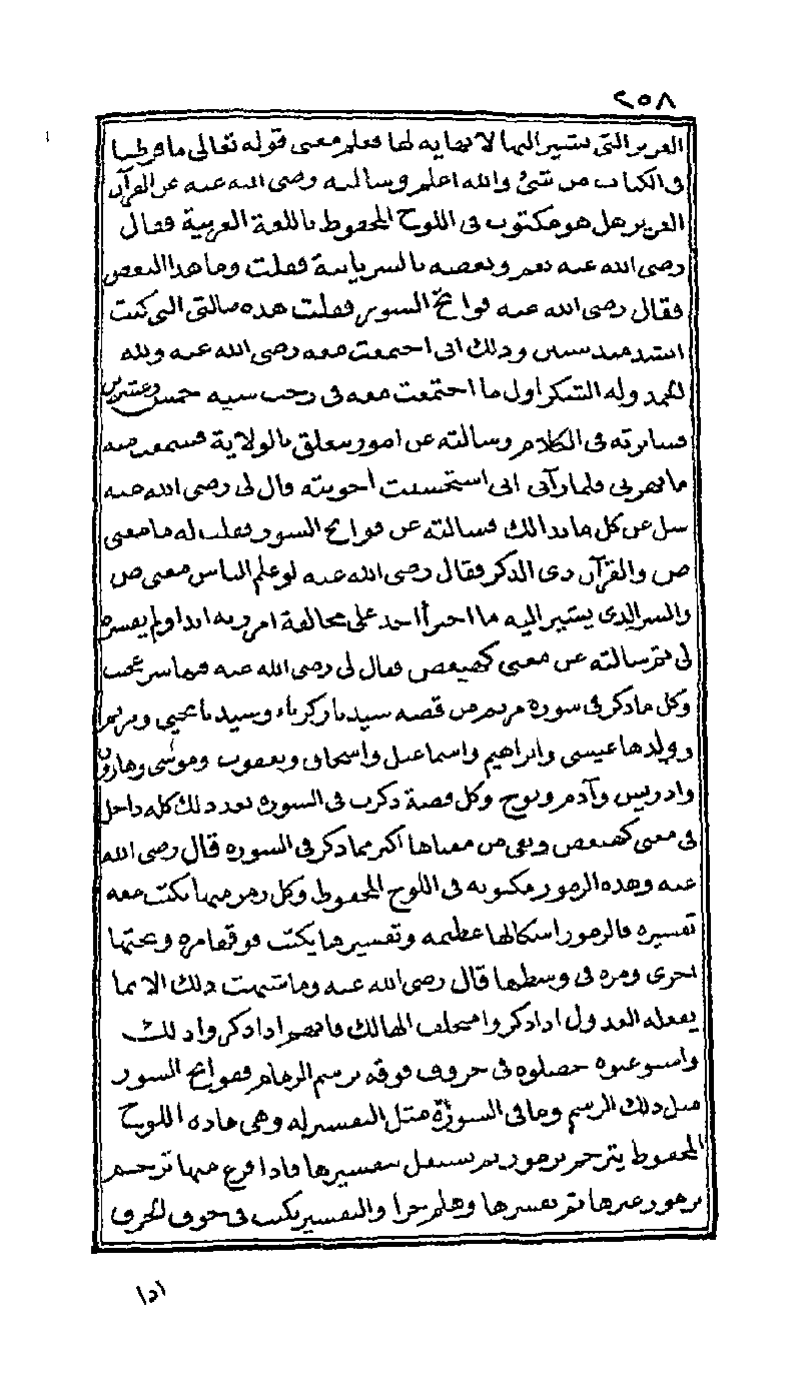 ٢٥٨
العزيز التي يشير اليها لا نهاية لها فعلم معنى قوله تعالى ما فرطنا
في الكتاب من شئ والله اعلم وسالته رضى الله عنه عن القرآن
العزيز هل هو مكتوب في اللوح المحفوظ باللغة العربية فقال
رضى الله عنه نعم وبعضه بالسريانية فقلت وما هذا البعض
فقال رضى الله عنه فواتح السور فقلت هذه ضالتي التي كنت
انشد منذ سنين وذلك انى اجتمعت معه رضى الله عنه ولله
الحمد وله الشكر اول ما اجتمعت معه في رجب سنة خمس وعشرين
فسايرته في الكلام وسالته عن امور تتعلق بالولاية فسمعت منه
ما بهرنى فلما رآنى انى استحسنت أجوبته قال لى رضى الله عنه
سل عن كل ما بدا لك فسالته عن فواتح السور فقلت له ما معنى
ص والقرآن ذى الذكر فقال رضى الله عنه لو علم الناس معنى ص
والسر الذى يشير اليه ما اجترأ احد على مخالفة امر ربه ابدا ولم يفسره
لى ثم سالته عن معنى كهيعص فقال لى رضى الله عنه فيها سر عجيب
وكل ما ذكر في سورة مريم من قصة سيدنا زكرياء وسيدنا يحيى ومريم
وولدها عيسى وابراهيم واسماعيل واسحاق ويعقوب وموسى وهارون
وادريس وآدم ونوح وكل قصة ذكرت في السورة بعد ذلك كله داخل
في معنى كهيعص وبقى من معناها اكثر مما ذكر في السورة قال رضى الله
عنه وهذه الرموز مكتوبة في اللوح المحفوظ وكل رمز منها يكتب معه
تفسيره فالرموز اشكالها عظيمة وتفسيرها يكتب فوقها مرة وتحتها
اخرى ومرة في وسطها قال رضى الله عنه وما شبهت ذلك الا بما
يفعله العدول اذا ذكروا مخلف الهالك فانهم اذا ذكروا ذلك
واستوعبوه حصلوه في حروف فوقه برسم الزمام ففواتح السور
مثل ذلك الرسم وما في السورة مثل التفسير له وهى عادة اللوح
المحفوظ يترجم برموز ثم يشتغل بتفسيرها فاذا فرغ منها ترجم
برموز غيرها ثم يفسرها وهلم جرا والتفسير يكتب في جوف الحرف
اذا